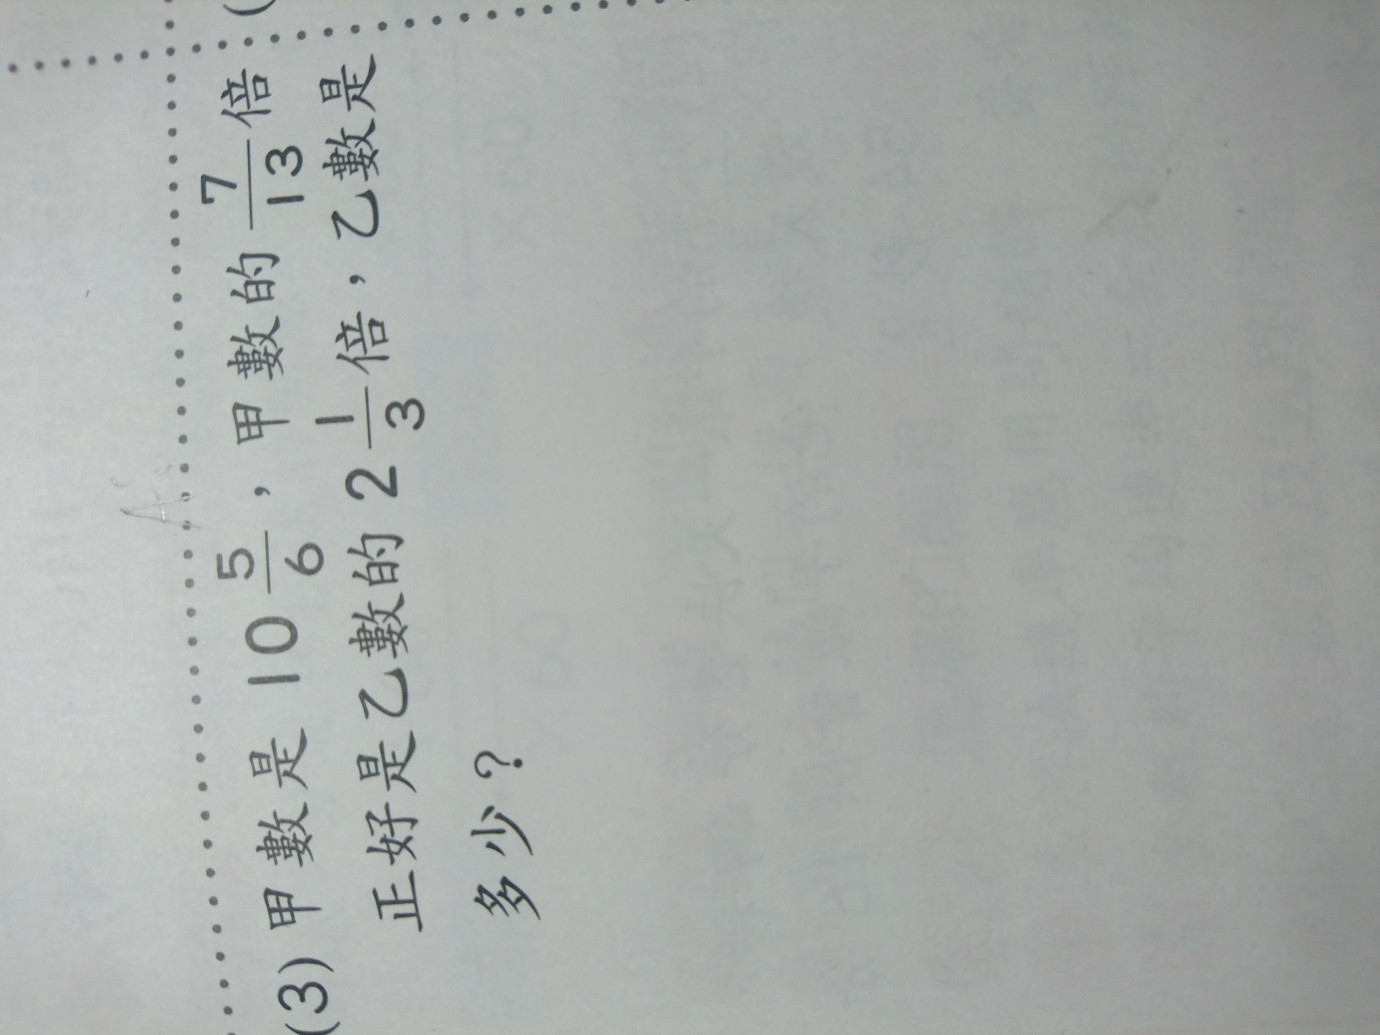 (3) 甲數是 10 5/6,甲數的 7/13 倍
正好是乙數的 2 1/3 倍,乙數是
多少?